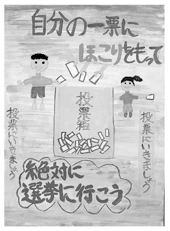 自分の一票に
ほこりをもって
投票箱
投票にいきましょう
投票にいきましょう
絶対に
選挙に行こう